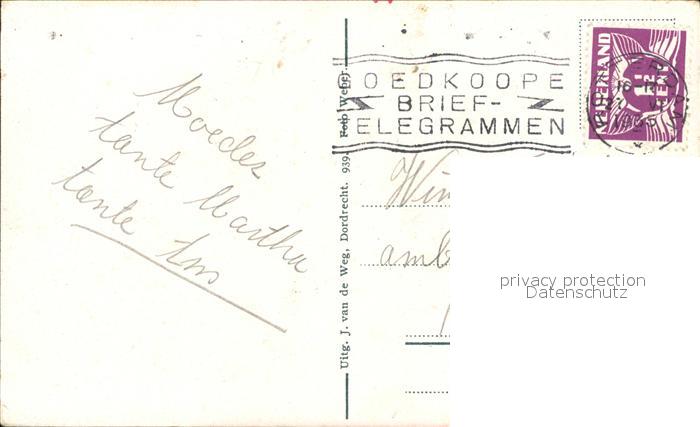 Moeder
tante Martha
tante Ins
Uitg. J. van de Weg, Dordrecht. 939 Foto Weber.
GOEDKOOPE
BRIEF-
TELEGRAMMEN
NEDERLAND
1½
CENT
Win
amb
privacy protection
Datenschutz